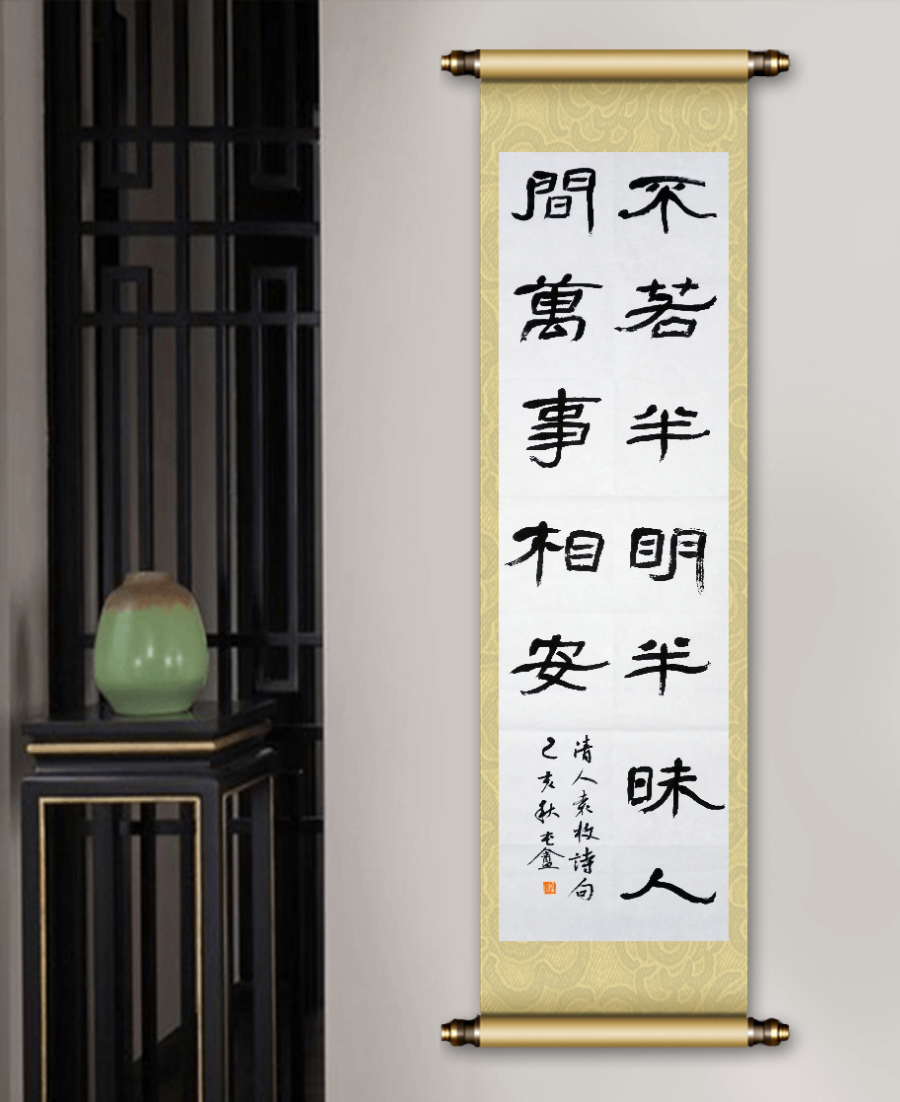 不若半明半昧人
間萬事相安
清人袁枚詩句
己亥秋